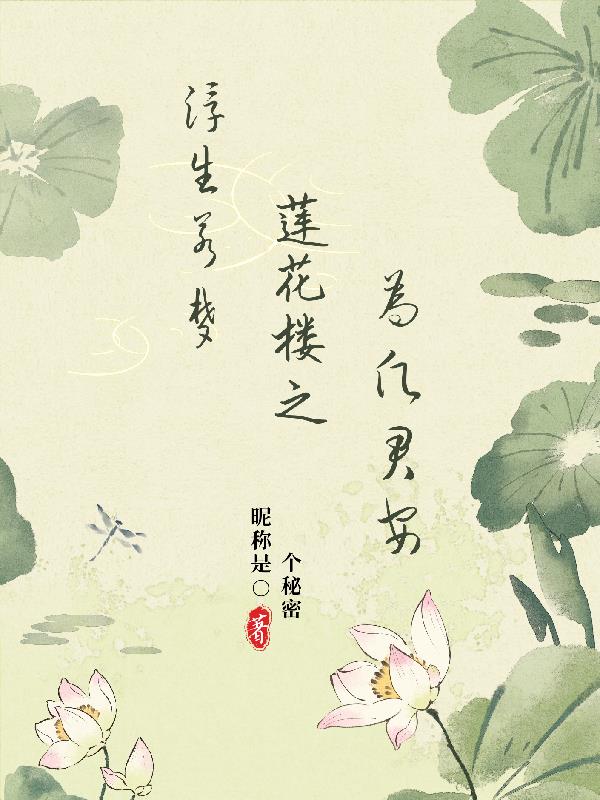 浮生若梦
莲花楼之
为仅君安
昵称是〇
个秘密
著